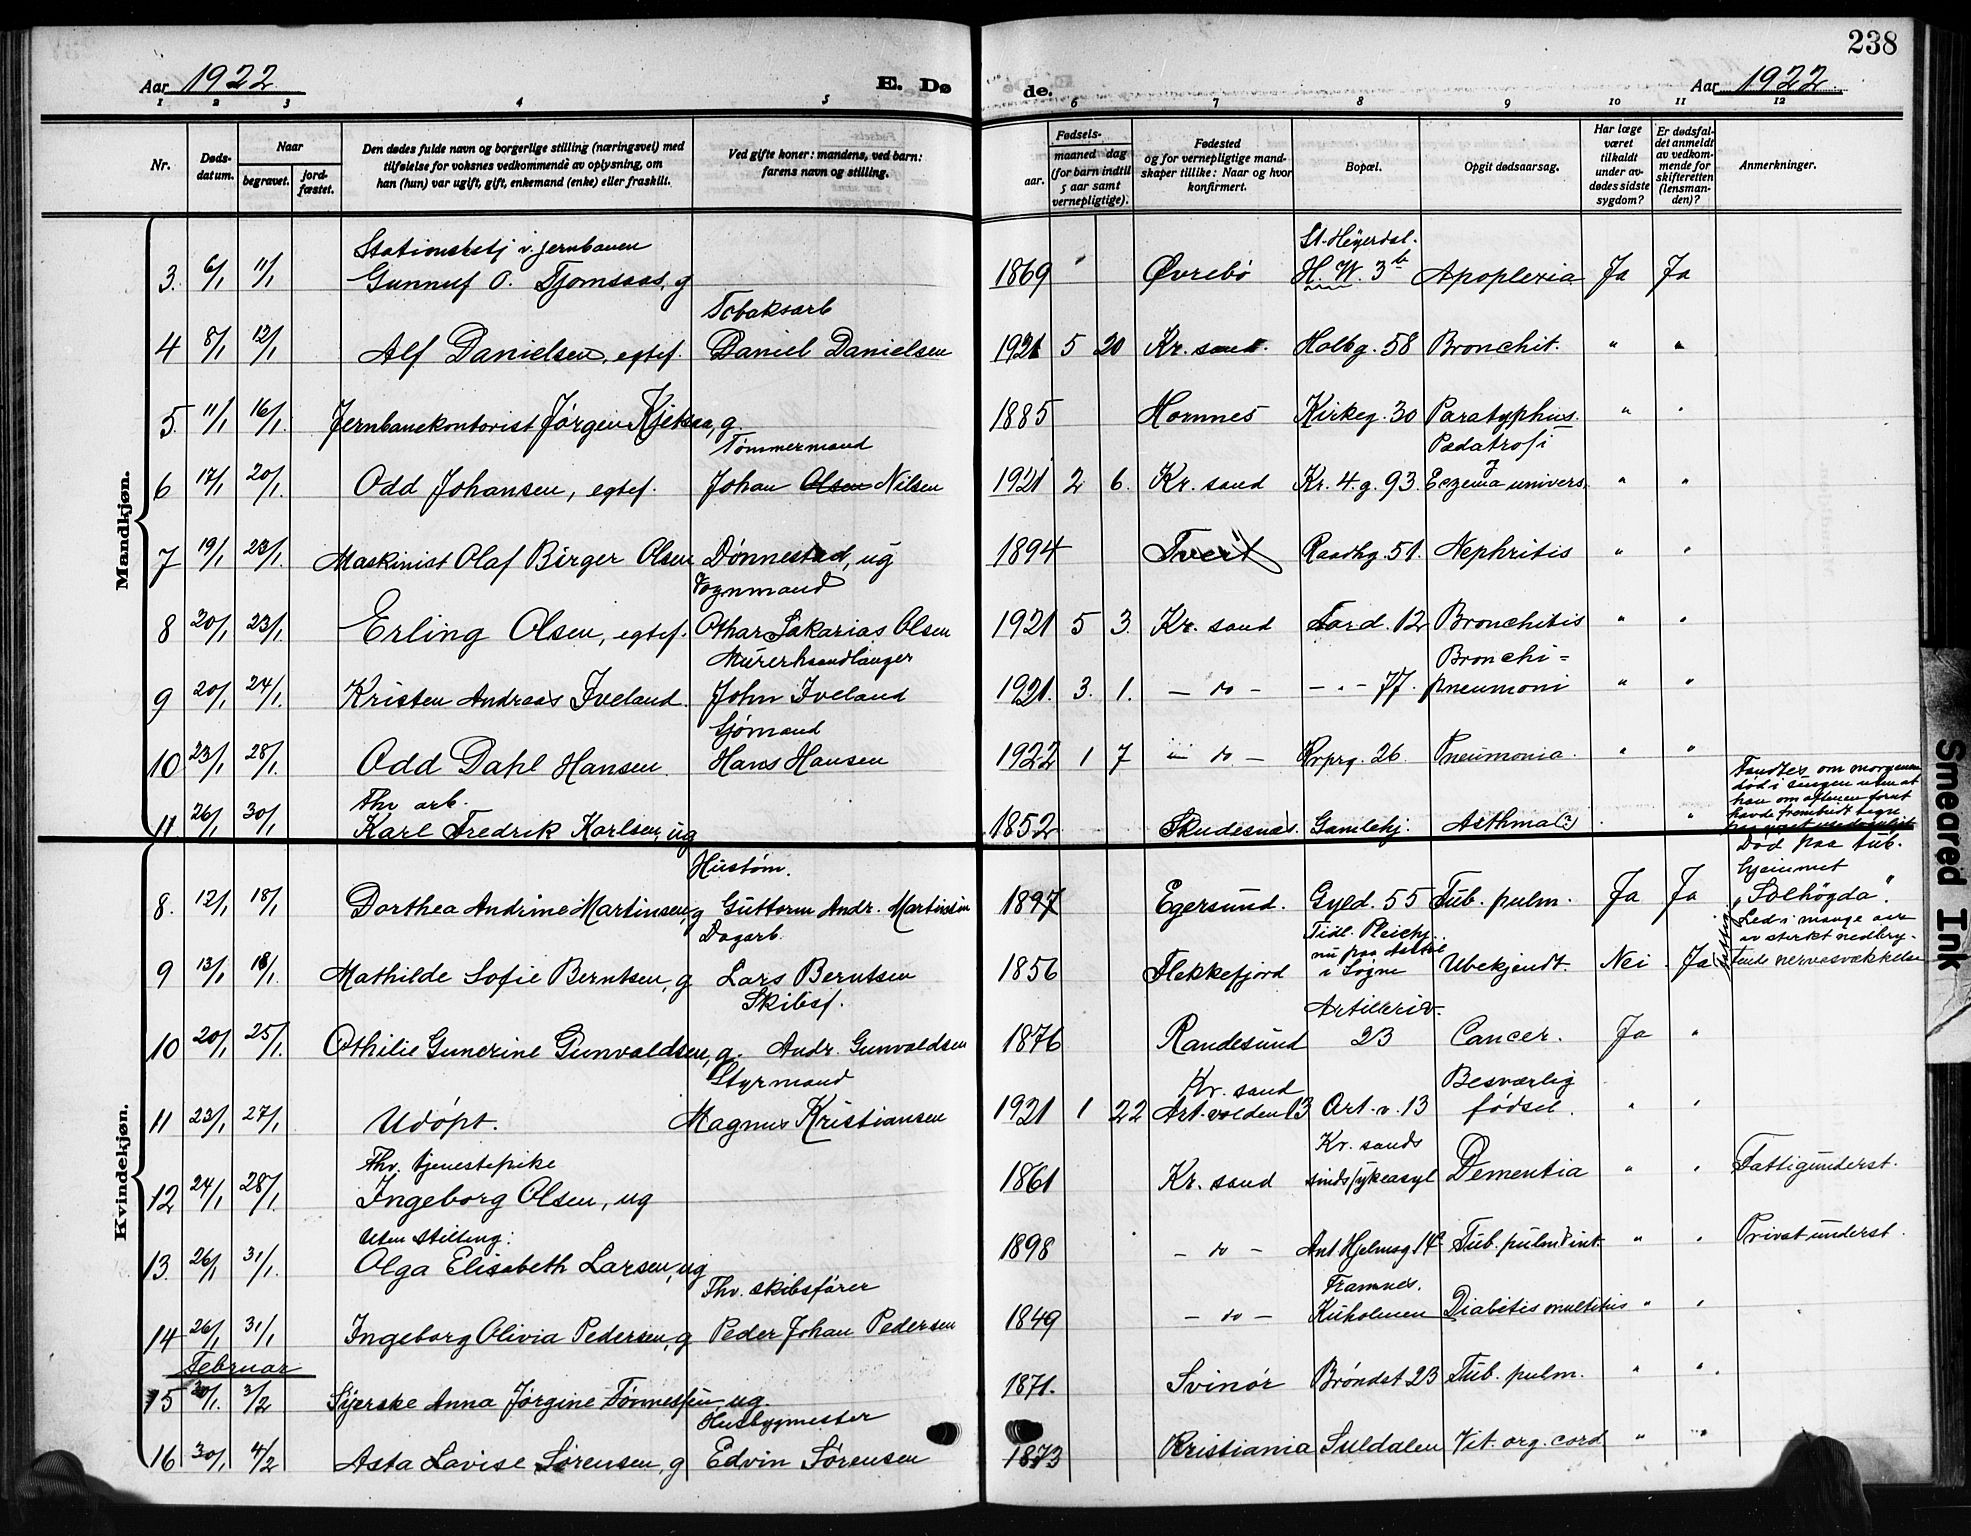 238
Aar 1922
E. Dø
de.
Aar 1922
1 2 3 4 5 6 7 8 9 10 11 12
Nr.
Døds-
datum.
Naar
begravet.
jord-
fæstet.
Den dødes fulde navn og borgerlige stilling (næringsvei) med
tilføielse for voksnes vedkommende av oplysning, om
han (hun) var ugift, gift, enkemand (enke) eller fraskilt.
Ved gifte koner: mandens, ved barn:
farens navn og stilling.
Fødsels-
aar.
maaned dag
(for barn indtil
5 aar samt
vernepligtige).
Fødested
og for vernepligtige mand-
skaper tillike: Naar og hvor
konfirmert.
Bopæl.
Opgit dødsaarsag.
Har læge
været
tilkaldt
under av-
dødes sidste
sygdom?
Er dødsfal-
det anmeldt
av vedkom-
mende for
skifteretten
(lensman-
den)?
Anmerkninger.
Mandkjøn.
Stationsbetj v. jernbanen St. Heyerdal.
3. 6/1 11/1 Gunnuf O. Tjomsaas, g 1869 Øvrebö H. W. 3 b Apoplexia Ja Ja
Tobaksarb
4 8/1 12/1 Alf Danielsen, egtef. Daniel Danielsen 1921 5 20 Kr. sand. Holbg. 58 Bronchit. " "
5 11/1 16/1 Jernbanekontorist Jørgen Kjetsaa, g 1885 Hornnes Kirkeg. 30 Paratyphus. " "
Tømmermand Pædatrofi
6 17/1 20/1 Odd Johansen, egtef. Johan Olsen Nilsen 1921 2 6. Kr. sand Kr. 4. g. 93. Eczema univers. " "
7 19/1 23/1 Maskinist Olaf Birger Olsen Dønnestad, ug 1894 Tveit Raadhg. 51. Nephritis " "
Vognmand
8 20/1 23/1 Erling Olsen, egtef. Othar Sakarias Olsen 1921 5 3. Kr. sand Tord. 12 Bronchitis " "
Murerhaandlanger Bronchi=
9 20/1 24/1 Kristen Andreas Iveland. John Iveland 1921. 3. 1. — do — — " — 77. pneumoni " "
Sjømand
10 23/1 28/1 Odd Dahl Hansen. Hans Hansen 1922 1 7 — do — Krprg. 26. Pneumonia. " "
Fhv arb.
11 26/1 30/1 Karl Fredrik Karlsen, ug 1852 Skudesnæs. Gamlehj. Asthma(?) "
Fandtes om morgenen
død i sengen uten at
han om aftenen forut
havde frembudt tegn
Kvindekjøn.
Hustøm.
8. 12/1 18/1 Dorthea Andrine Martinsen, g Guttorm Andr. Martinsen 1897 Egersund. Gyld. 55 Tub. pulm. Ja Ja
Død paa tub.
hjemmet
"Solhögda".
Dagarb. Tidl. Pleiehj.
nu paa
9 13/1 18/1. Mathilde Sofie Berntsen, g Lars Berntsen 1856 Flekkefjord i Sogne Ubekjendt. Nei Ja
Led i mange aar
av sterkt nedbry-
tende nervesvækkelse
Skibsf. Artilleriv-
10 20/1 25/1. Othilie Gunerine Gunvaldsen, g. Andr. Gunvaldsen 1876 Randesund 23 Cancer. Ja "
Styrmand Kr. sand Besværlig
11 23/1 27/1. Udöpt. Magnus Kristiansen 1921 1 22 Art. volden 13 Art. v. 13 fødsel. " "
Fhv. tjenestepike Kr. sands
12 24/1 28/1. Ingeborg Olsen, ug 1861 Kr. sand sindssykeasyl Dementia " " Fattigunderst.
Uten stilling:
13. 26/1 31/1. Olga Elisabeth Larsen, ug 1898 — do — Ant Hjelmsg 14 c Tub. pulm & int. " " Privat underst.
Fhv. skibsfører Framnes.
14 26/1 31/1 Ingeborg Olivia Pedersen, g Peder Johan Pedersen 1849 — do — Kuholmen Diabitis mullitus " "
Februar
15 30/1. 3/2 Syerske Anna Jörgine Tönnessen, ug. 1871. Svinör Bröndst 23 Tub. pulm. " "
Husbygmester
16 30/1. 4/2 Asta Lovise Sörensen, g Edvin Sörensen 1873 Kristiania Suldalen Vit. org. cord " "
Smeared Ink